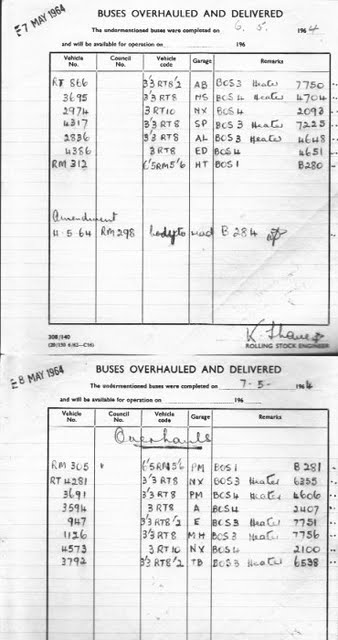 E 7 MAY 1964
BUSES OVERHAULED AND DELIVERED
The undermentioned buses were completed on 6. 5. 1964
and will be available for operation on 196
Vehicle No. Council No. Vehicle code Garage Remarks
RT 866 3/3RT8/2 AB BOS3 Heater 7750
3695 3/3RT8 NS BOS4 Heater 4704
2974 3RT10 NX BOS4 2093
4317 3/3RT8 SP BOS3 Heater 7225
2836 5/3RT8 AL BOS3 Heater 4648
4386 3RT8 ED BOS4 4651
RM 312 6/5RM5/6 HT BOS1 B280
Amendment
11.5.64 RM298 body to read B 284
K. Shave
308/140
ROLLING STOCK ENGINEER
E 8 MAY 1964
BUSES OVERHAULED AND DELIVERED
The undermentioned buses were completed on 7-5- 1964
and will be available for operation on 196
Vehicle No. Council No. Vehicle code Garage Remarks
Overhauls
RM 305 6/5RM5/6 PM BOS1 B281
RT 4281 3/3RT8 NX BOS3 Heater 6355
3691 3/3RT8 PM BOS4 Heater 4606
3594 3RT8 A BOS4 2407
947 3/3RT8/2 E BOS3 Heater 7751
1126 3/3RT8 MH BOS3 Heater 7756
4573 3RT10 NX BOS4 2100
3792 3/3RT8/2 TB BOS3 Heater 6538